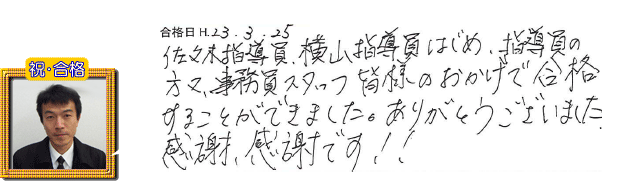 祝・合格
合格日 H.23.3.25
佐々木指導員、横山指導員はじめ、指導員の
方々、事務員スタッフ皆様のおかげで合格
することができました。ありがとうございました。
感謝、感謝です!!